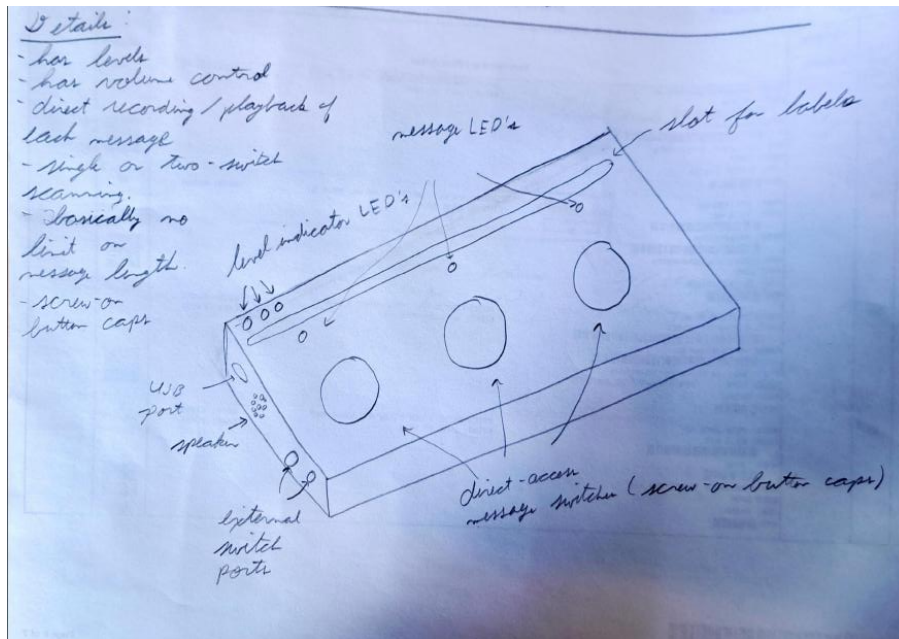 Details:
- has levels
- has volume control
- direct recording/playback of
each message
- single or two-switch
scanning.
- basically no
limit on
message length.
- screw-on
button caps
message LED's
slot for labels
level indicator LED's
USB
port
speaker
external
switch
ports
direct-access
message switches (screw-on button caps)